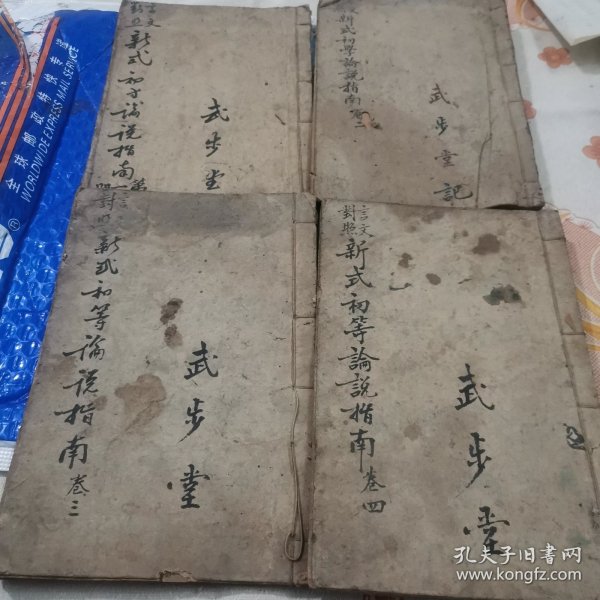 言文
新式初学論説指南
武步堂
新式初学論説指南卷二
武步堂記
對照
新式初等論説指南卷三
武步堂
言文
對照
新式初等論説指南卷四
武步堂
全球邮政特快专递
WORLDWIDE EXPRESS MAIL SERVICE
孔夫子旧书网
www.kongfz.com